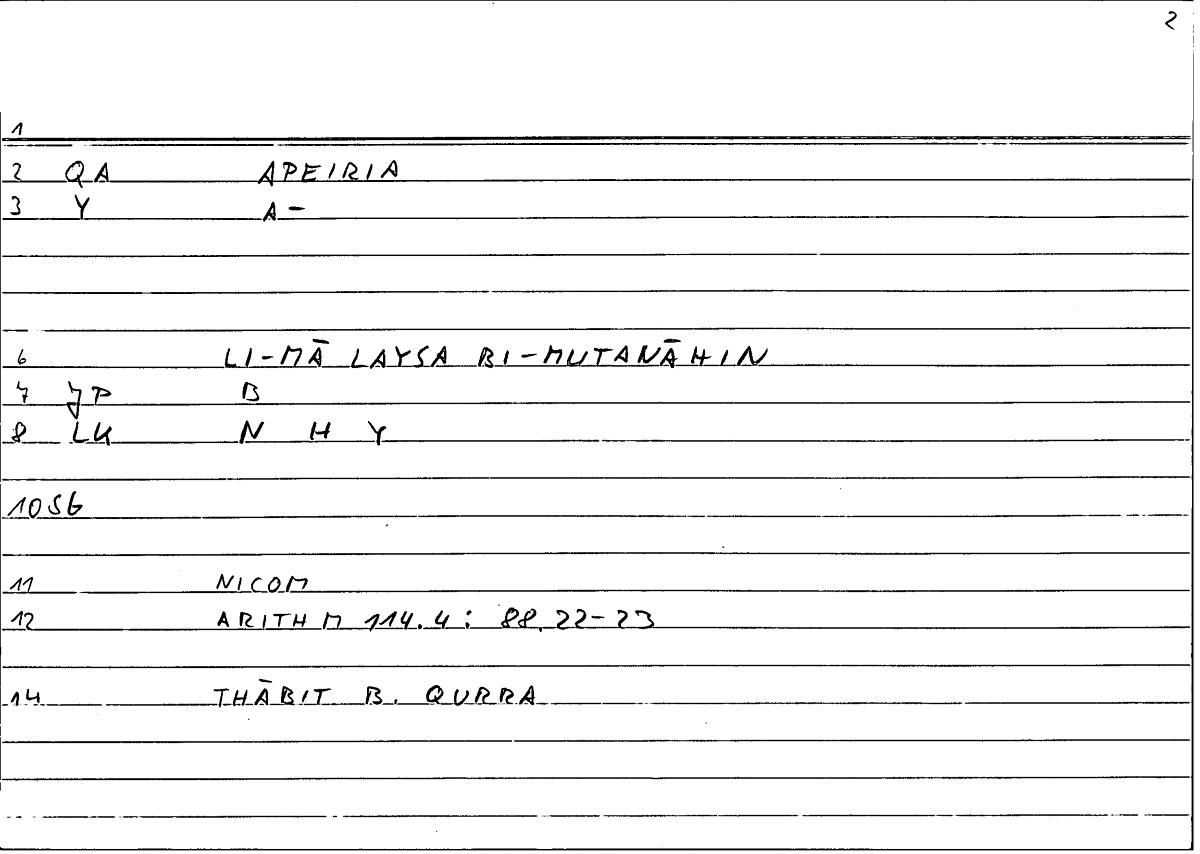 2
1
2 QA APEIRIA
3 Y A-
6 LI-MĀ LAYSA BI-MUTANĀHIN
7 JP B
8 LK N H Y
10 SG
11 NICOM
12 ARITHM 114.4: 88.22-23
14 THĀBIT B. QURRA